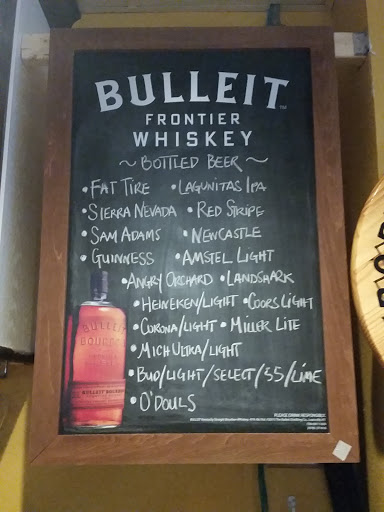 BULLEIT™
FRONTIER
WHISKEY
~ BOTTLED BEER ~
• FAT TIRE • LAGUNITAS IPA
• SIERRA NEVADA • RED STRIPE
• SAM ADAMS • NEWCASTLE
• GUINNESS • AMSTEL LIGHT
• ANGRY ORCHARD • LANDSHARK
• HEINEKEN/LIGHT • COORS LIGHT
• CORONA/LIGHT • MILLER LITE
• MICH ULTRA/LIGHT
• BUD/LIGHT/SELECT/55/LIME
• O'DOULS
BULLEIT
BOURBON
PLEASE DRINK RESPONSIBLY.